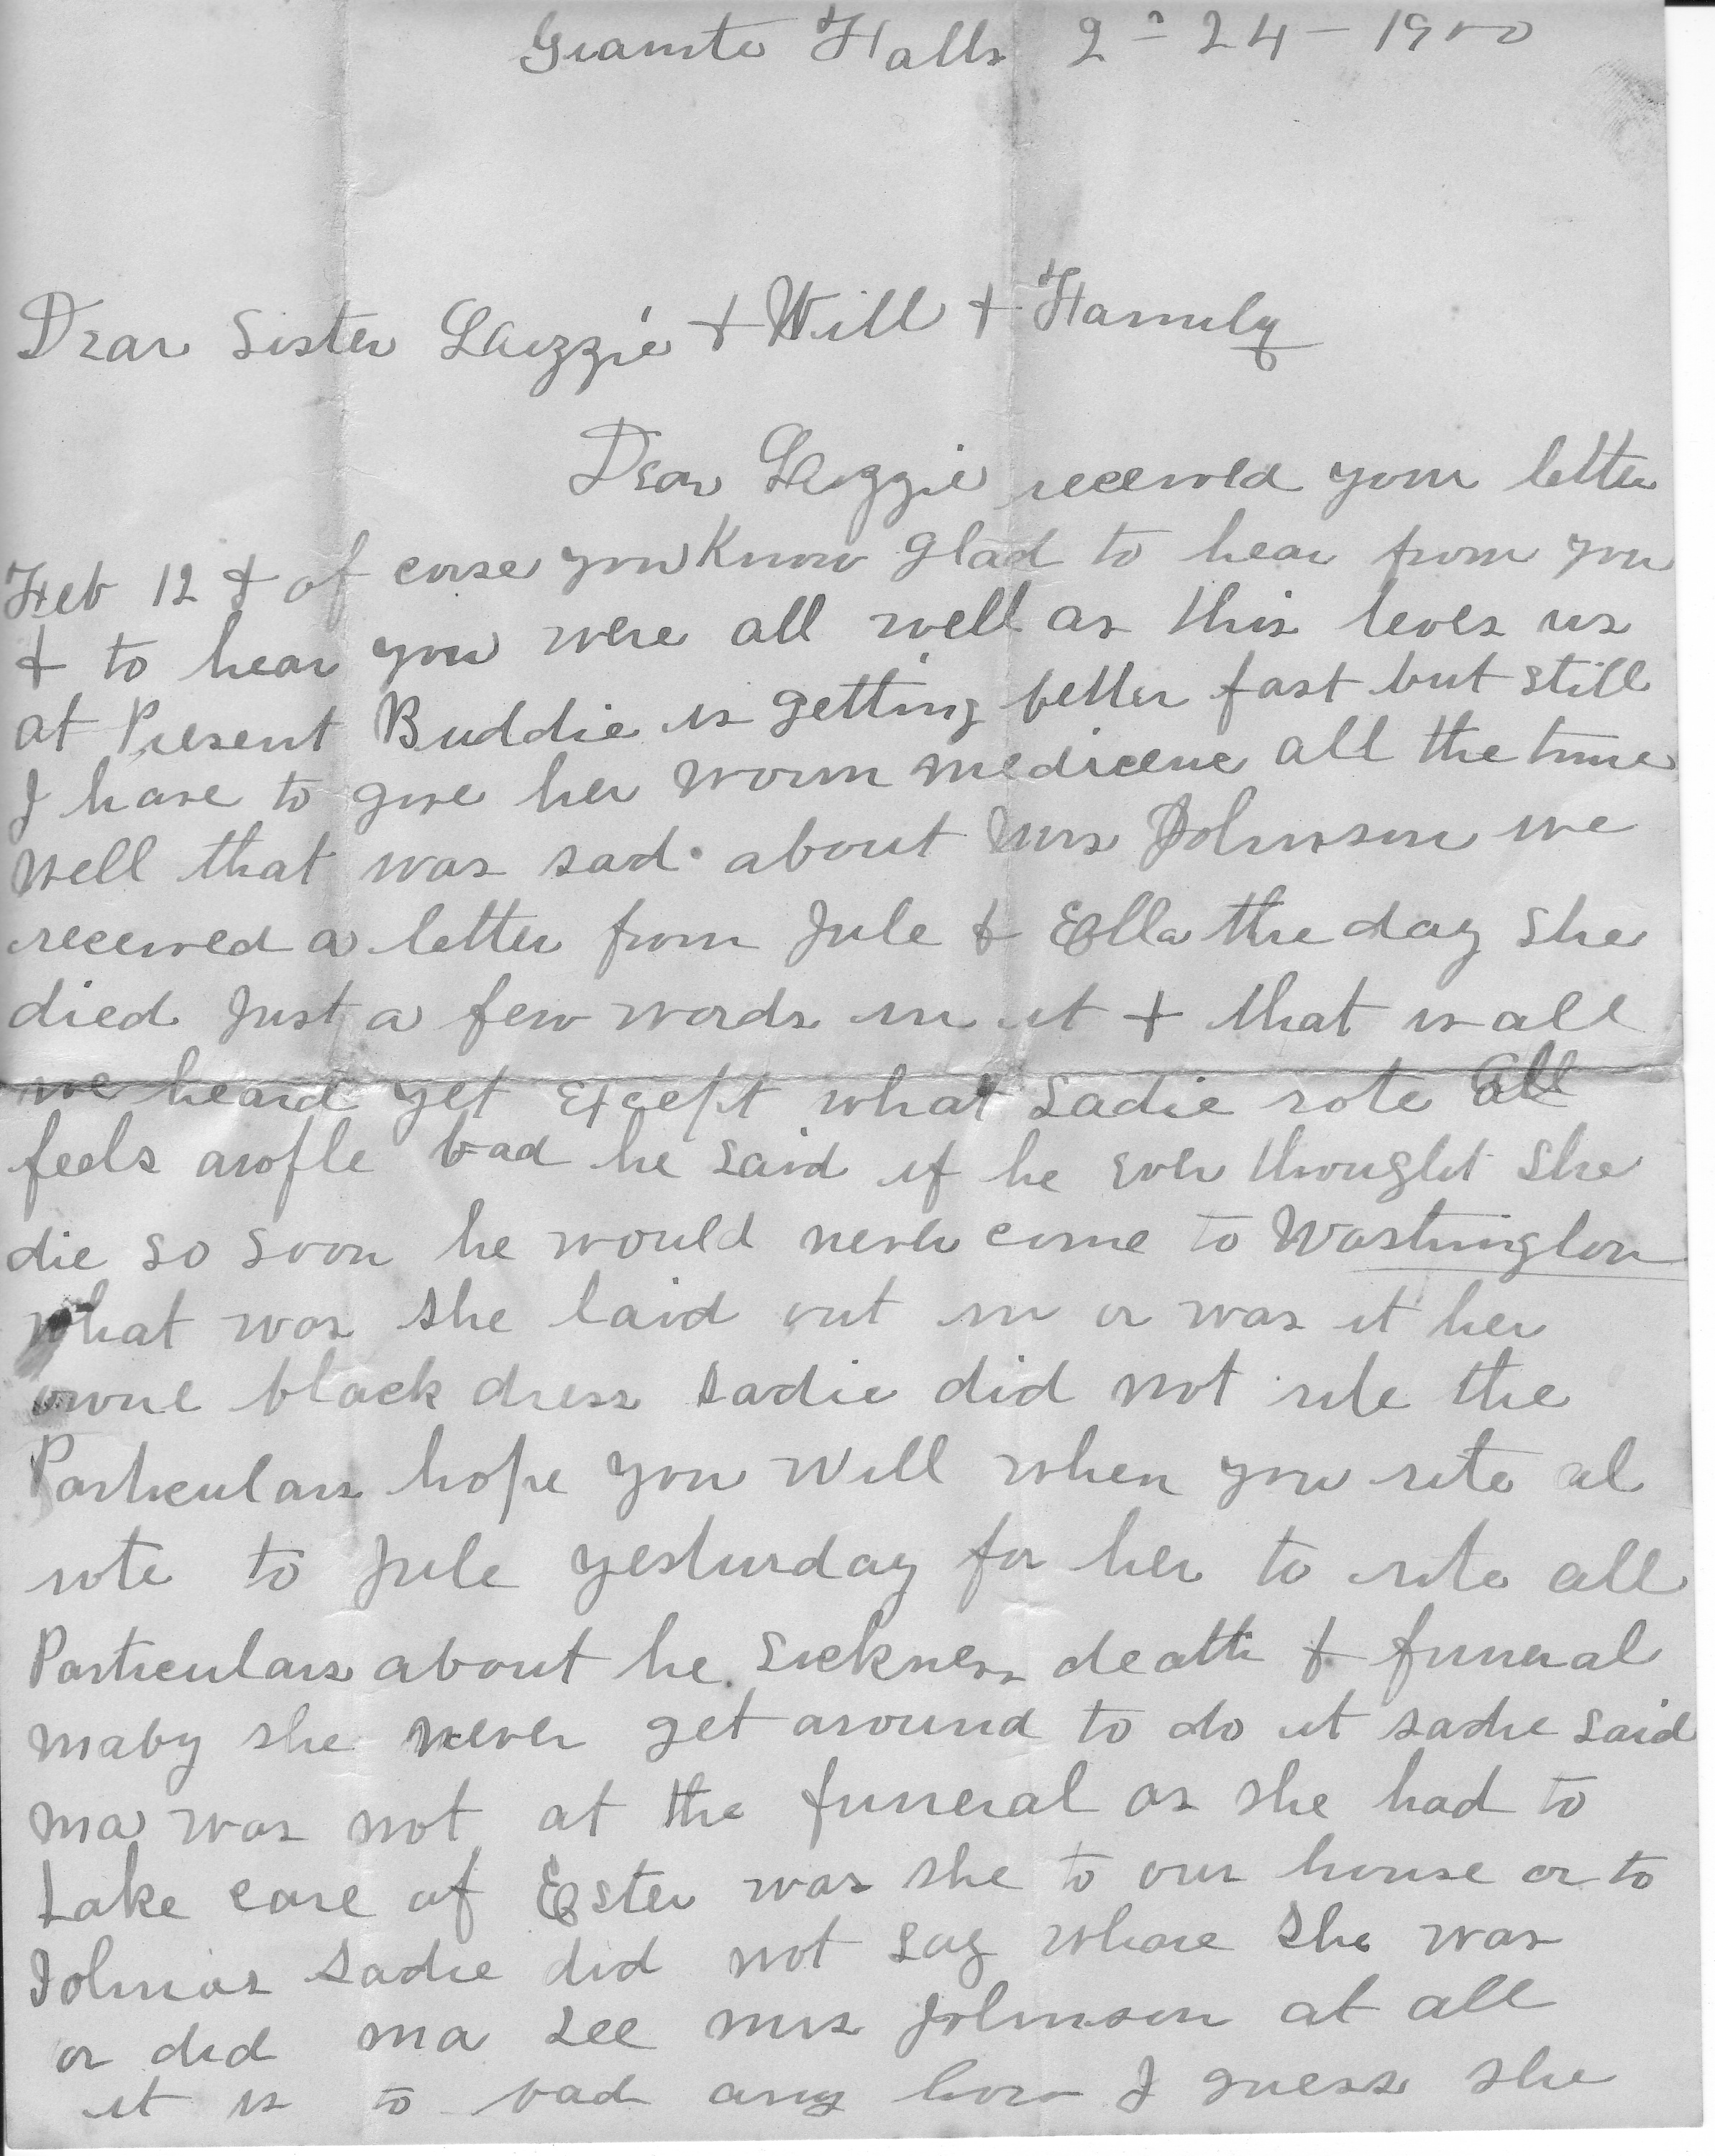 Granite Falls 2-24-1900
Dear Sister Laizzie & Will & Family
Dear Laizzie received your letter
Feb 12 & of corse you know glad to hear from you
& to hear you were all well as this leves us
at Present Buddie is getting better fast but still
I have to give her worm medicene all the time
Well that was sad about Mrs Johnson we
received a letter from Jule & Ella the day she
died Just a few words in it & that is all
we heard yet Except what Sadie rote All
feels awfle bad he said if he ever thought she
die so soon he would never come to Washington
What was she laid out in or was it her
owne black dress Sadie did not rite the
Particulars hope you will when you rite al
rote to Jule yesturday for her to rite all
Particulars about he sickness death & funeral
maby she never get around to do it Sadie said
ma was not at the funeral as she had to
take care of Ester was she to our house or to
Sadie did not say whare she was
or did ma see mrs Johnson at all
it is to bad any how I guess she